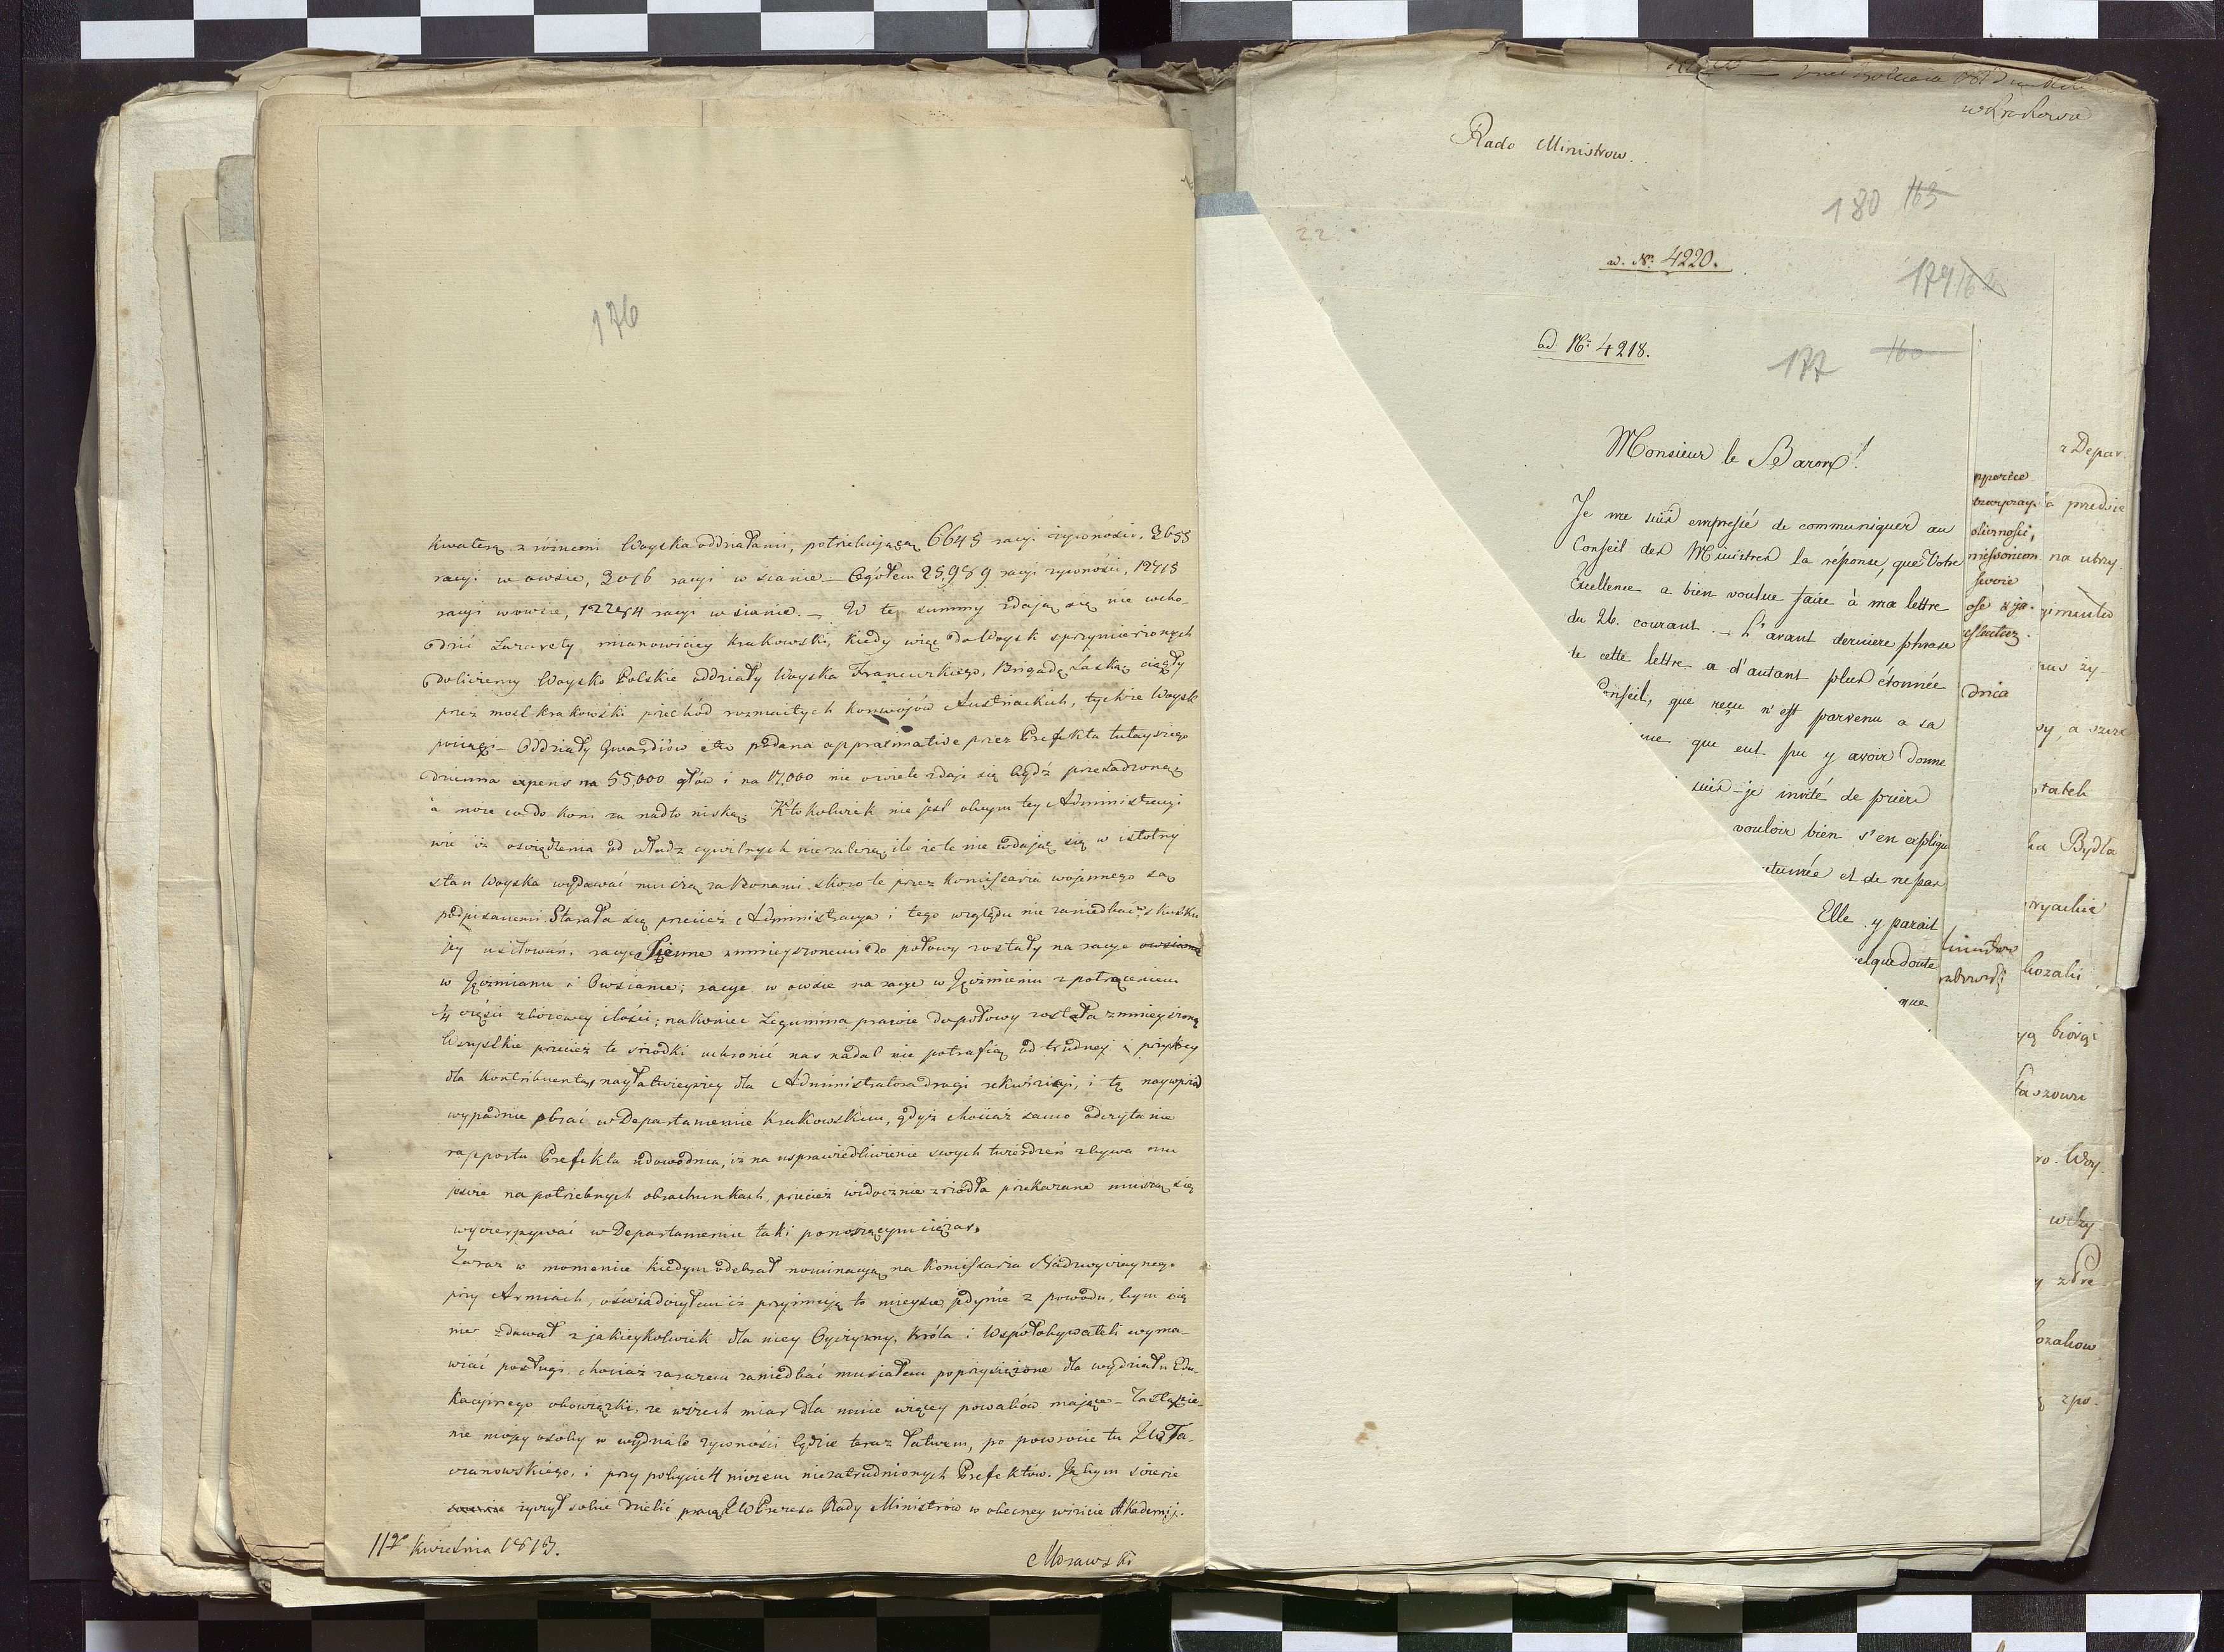 176
kwaterą z różnemi Woyska oddziałami, potrzebującą 6645 racyi żywności, 2655
racyi w owsie, 2016 racyi w sianie – Ogółem 25,989 racyi żywności, 12415
racyi w owsie, 12284 racyi w sianie. – W te summy zdają się nie wcho-
dzić Lazarety mianowiciey Krakowski, kiedy więc do Woysk sprzymierzonych
doliczemy Woysko Polskie oddziały Woyska Francuzkiego, Brigadę Saską ciągły
przez most Krakowski przechód rozmaitych konwojów Austriackich, tychże Woysk
pociągi – Oddziały Gwardiów etc podana approximative przez Prefekta tutayszego
dzienna expens na 55,000 głów i na 17,000 nie o wiele zdaje się bydź przesadzoną
a może co do koni za nadto niską. Ktokolwiek nie jest obcym tey Administracyi
wie iż oszczędzenia od władz cywilnych nie zależą, ile że te nie wdając się w istotny
stan Woyska wydawać muszą za bonami skoro te przez Komissarza wojennego są
podpisanemi. Starała się przecież Administracya i tego względu nie zaniedbać, w skutku
jey usiłowań, racye Sienne zmnieyszonemi do połowy zostały na racye owsiane
w Jęczmianie i Owsianie; racye w owsie na racye w Jęczmieniu z potrąceniem
1/4 części zbożowey ilości; nakoniec Legumina prawie do połowy została zmnieyszoną
Wszystkie przecież te srzodki uchronić nas nadal nie potrafią od trudney i przykrey
dla Kontribuenta, nayłatwieyszey dla Administratora drogi rekwizicyi, i tę naywprzód
wypadnie obrać w Departamencie Krakowskim, gdyż chociaż samo odczytanie
rapportu Prefekta udowodnia, iż na usprawiedliwienie swych twierdzeń zbywa mu
jeszcze na potrzebnych obrachunkach, przecież widocznie zrzódła przekazane muszą się
wyczerpywać w Departamencie taki ponoszącym ciężar.
Zaraz w momencie kiedym odebrał nominacyą na Komissarza Nadzwyczaynego
przy Armiach, oświadczyłem iż przyjmuję to mieysce jedynie z powodu, bym się
nie zdawał z jakieykolwiek dla mey Oyczyzny, Króla i Współobywateli wyma-
wiać posługi, chociaż zarazem zaniedbać musiałem poprzysiężone dla wydziału Edu-
kacyinego obowiązki, ze wszech miar dla mnie więcey powabów mające – Zastąpie-
nie moiey osoby w wydziale żywności będzie teraz łatwem, po powrocie tu JW Ta-
rzanowskiego, i przy pobycie 4 niczem niezatrudnionych Prefektów. Ja bym szczerze
życzył sobie dzielić pracę JW Prezesa Rady Ministrów w obecney wizicie Akademij.
11go Kwietnia 1813.
Morawski
w Krakowie
Rado Ministrow.
180 165
22
ad. Nr. 4220.
179 162
ad Nr. 4218.
177 160
Monsieur le Baron!
Je me suis empressé de communiquer au
Conseil des Ministres la réponse, que Votre
Excellence a bien voulue faire à ma lettre
du 26. courant. – L'avant derniere phrase
de cette lettre a d'autant plus étonnée
Conseil, que reçu n'est parvenu a sa
que eut pu y avoir donne
suis-je invité de prier
vouloir bien s'en expliqu
et de ne pas
Elle y parait
elque doute
que
z Depar.
a przedsię
na utrzy.
drica
sy, a szcze
tatek
ka Bydła
kozaki
ro. Woy.
wszy
ozakow
z po-